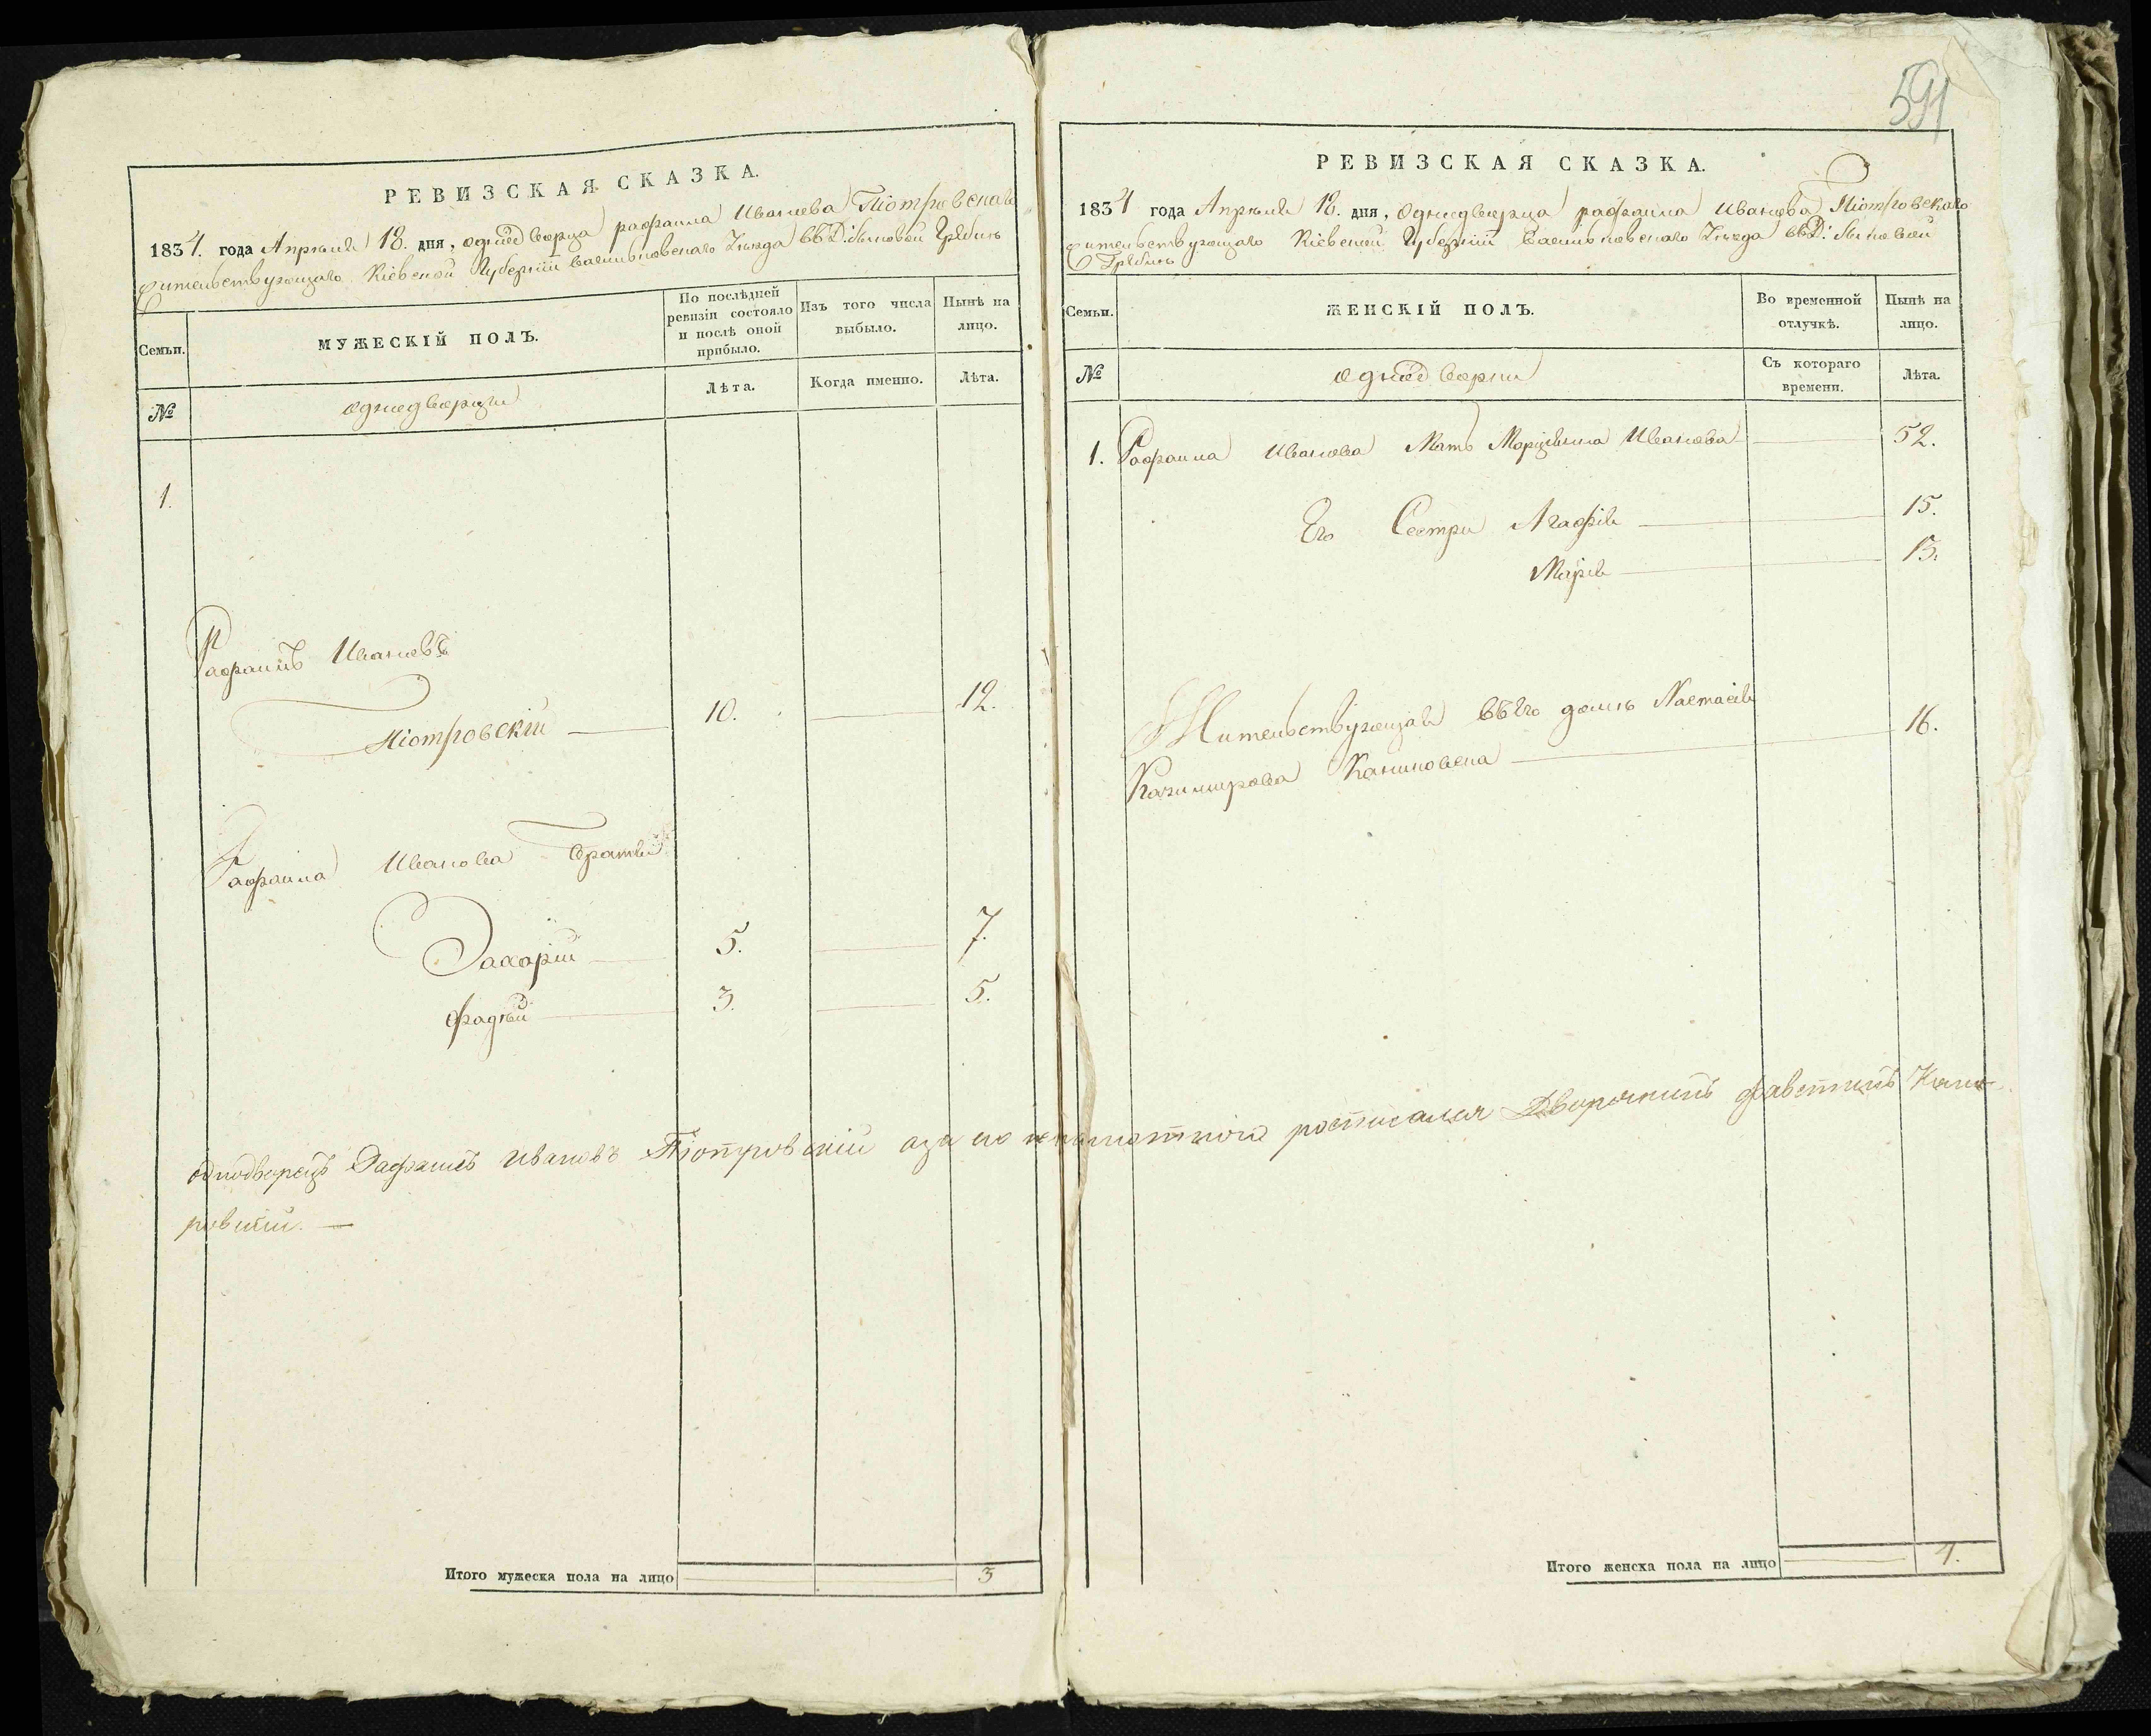 591
РЕВИЗСКАЯ СКАЗКА.
1834. года Апреля 18. дня, однодворца рафаила Иванова Піотровскаго
жительствующаго Кіевской Губерніи Васильковскаго Уезда въ Д:
Семьи.
МУЖЕСКІЙ ПОЛЪ.
По послѣдней ревизіи состояло и послѣ оной прибыло.
Изъ того числа выбыло.
Нынѣ на лицо.
№
однодворци
Лѣта.
Когда именно.
Лѣта.
1.
Рафаилъ Ивановъ
Піотровскій 10. 12.
Рафаила Иванова братья
Захарій 5. 7.
Фадѣй 3. 5.
однодворецъ Рафаилъ Ивановъ Піотровскій а за его неграмотного росписался Дворянинъ Фавстинъ
Итого мужеска пола на лицо 3
РЕВИЗСКАЯ СКАЗКА.
1834 года Апреля 18. дня, Однодворца рафаила Иванова Піотровскаго
жительствующаго Кіевской Губерніи Васильковскаго Уезда въ Д:
Семьи.
ЖЕНСКІЙ ПОЛЪ.
Во временной отлучкѣ.
Нынѣ на лицо.
№
однодворки
Съ котораго времени.
Лѣта.
1. Рафаила Иванова Мать Иванова 52.
Его Сестри Агафія 15.
Марія 13.
Жительствующая въ его доме Настасія
Казимирова 16.
Итого женска пола на лицо 4.